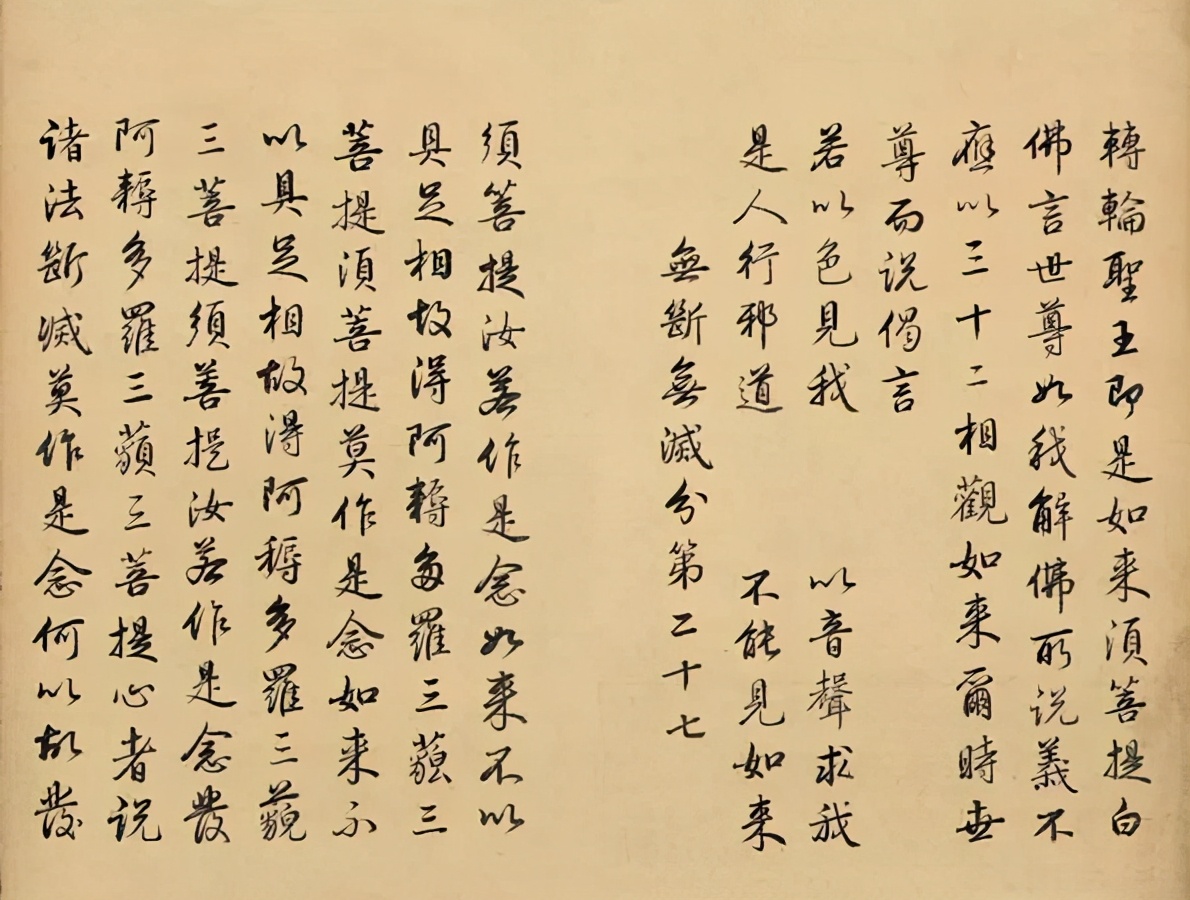 轉輪聖王即是如来須菩提白
佛言世尊如我解佛所说義不
應以三十二相觀如来爾時世
尊而说偈言
若以色見我 以音聲求我
是人行邪道 不能見如来
無斷無滅分第二十七
須菩提汝若作是念如来不以
具足相故得阿耨多羅三藐三
菩提須菩提莫作是念如来不
以具足相故得阿耨多羅三藐
三菩提須菩提汝若作是念發
阿耨多羅三藐三菩提心者说
诸法斷滅莫作是念何以故發